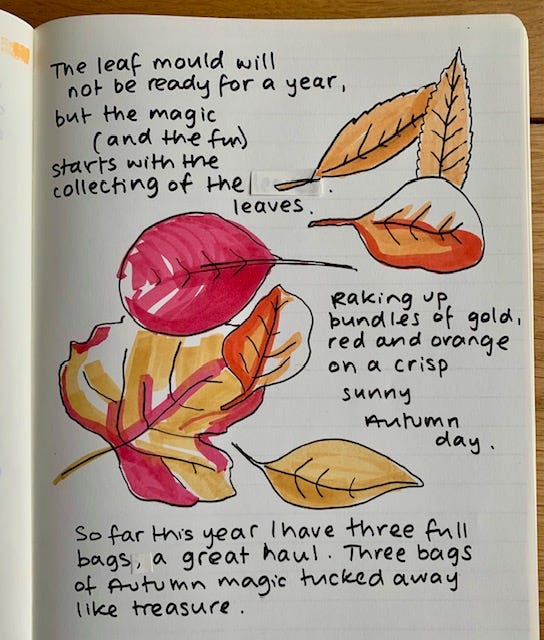 The leaf mould will
not be ready for a year,
but the magic
(and the fun)
starts with the
collecting of the .
leaves.
Raking up
bundles of gold,
red and orange
on a crisp
sunny
Autumn
day.
So far this year I have three full
bags, a great haul. Three bags
of Autumn magic tucked away
like treasure.